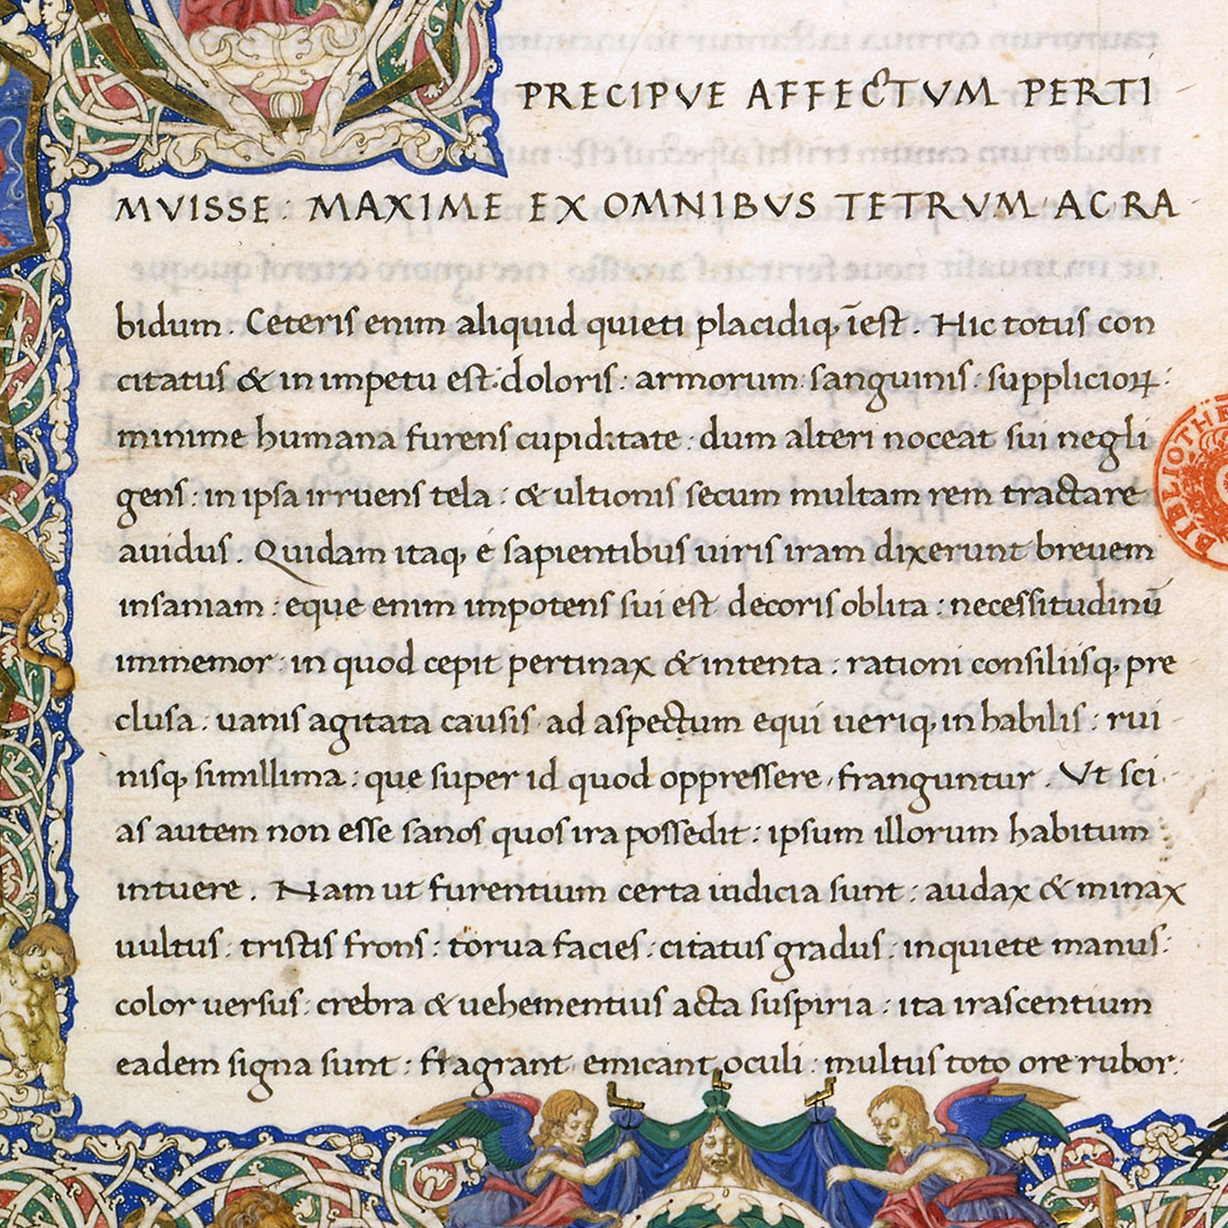 PRECIPVE AFFECTVM PERTI
MVISSE : MAXIME EX OMNIBVS TETRVM AC RA
bidum . Ceteris enim aliquid quieti placidiq, īest . Hic totus con
citatus & in impetu est : doloris : armorum : sanguinis : supplicioꝝ :
minime humana furens cupiditate : dum alteri noceat sui negli
gens : in ipsa irruens tela : & ultionis secum multam rem tractare
auidus . Quidam itaq, é sapientibus uiris iram dixerunt breuem
insaniam : eque enim impotens sui est decoris oblita : necessitudinū
immemor : in quod cepit pertinax & intenta : rationi consiliisq, pre
clusa : uanis agitata causis ad aspectum equi ueriq, in habilis : rui
nisq, simillima : que super id quod oppressere , franguntur . Vt sci
as autem non esse sanos quos ira possedit : ipsum illorum habitum
intuere . Nam ut furentium certa iudicia sunt : audax & minax
uultus : tristis frons : torua facies : citatus gradus : inquiete manus :
color uersus : crebra & uehementius acta suspiria : ita irascentium
eadem signa sunt : flagrant emicant oculi : multus toto ore rubor :
BIBLIOTHE